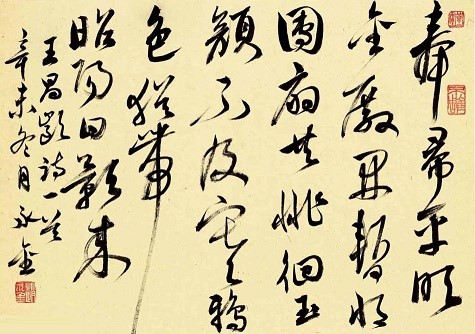 奉帚平明
金殿開暫將
團扇共徘徊玉
顏不及寒鴉
色猶帶
昭陽日影來
王昌齡詩一首
辛未冬月